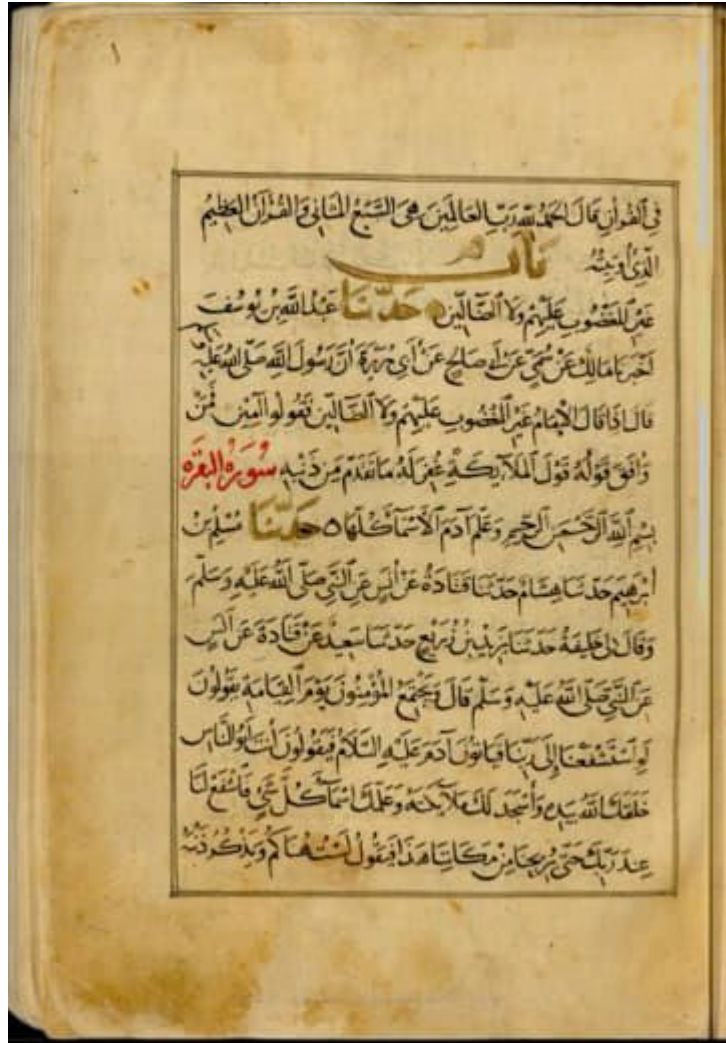 في القرآن قال الحمد لله رب العالمين هي السبع المثاني والقرآن العظيم
الذي أوتيته باب
غير المغضوب عليهم ولا الضالين حدثنا عبد الله بن يوسف
أخبرنا مالك عن سمي عن أبي صالح عن أبي هريرة أن رسول الله صلى الله عليه وسلم
قال إذا قال الإمام غير المغضوب عليهم ولا الضالين فقولوا آمين فمن
وافق قوله قول الملائكة غفر له ما تقدم من ذنبه سورة البقرة
بسم الله الرحمن الرحيم وعلم آدم الأسماء كلها حدثنا مسلم بن
إبرهيم حدثنا هشام حدثنا قتادة عن أنس عن النبي صلى الله عليه وسلم
وقال لي خليفة حدثنا يزيد بن زريع حدثنا سعيد عن قتادة عن أنس
عن النبي صلى الله عليه وسلم قال ويجتمع المؤمنون يوم القيامة يقولون
لو استشفعنا إلى ربنا فيأتون آدم عليه السلام فيقولون أنت أبو الناس
خلقك الله بيده وأسجد لك ملائكته وعلمك أسماء كل شيء فاشفع لنا
عند ربك حتى يريحنا من مكاننا هذا فيقول لست هناكم ويذكر ذنبه